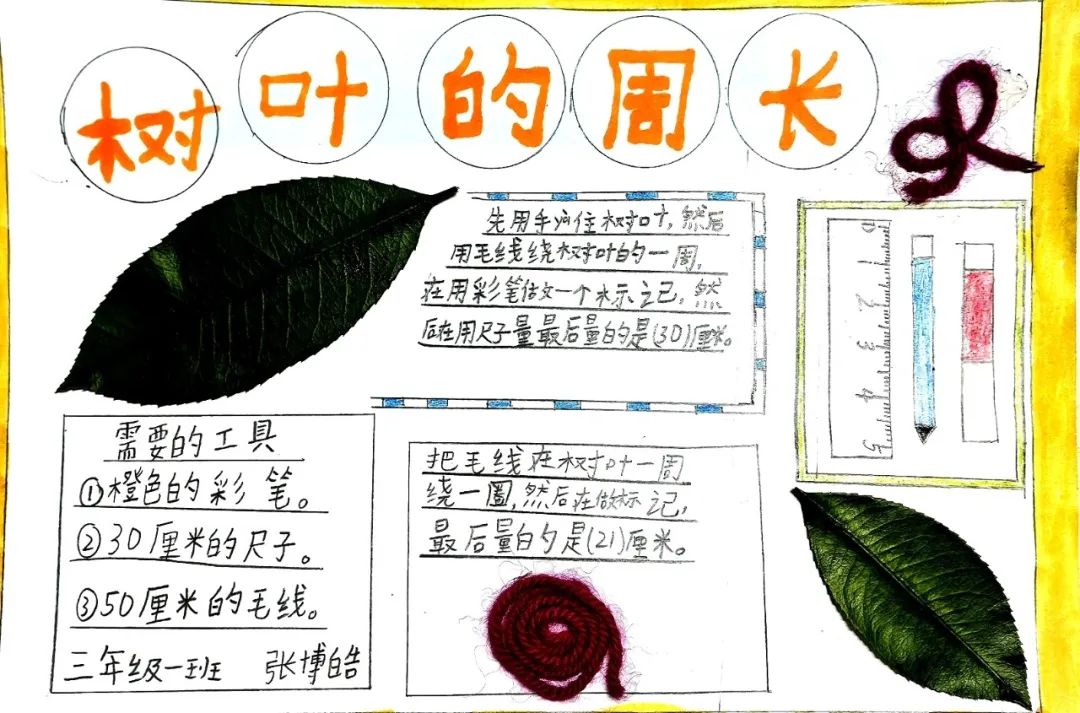 树叶的周长
先用手沿住树叶,然后
用毛线绕树叶的一周,
在用彩笔做一个标记,然
后在用尺子量最后量的是(30)厘米。
0 1 2 3 4 5
需要的工具
①橙色的彩笔。
②30厘米的尺子。
③50厘米的毛线。
三年级一班 张博皓
把毛线在树叶一周
绕一圈,然后在做标记,
最后量的是(21)厘米。